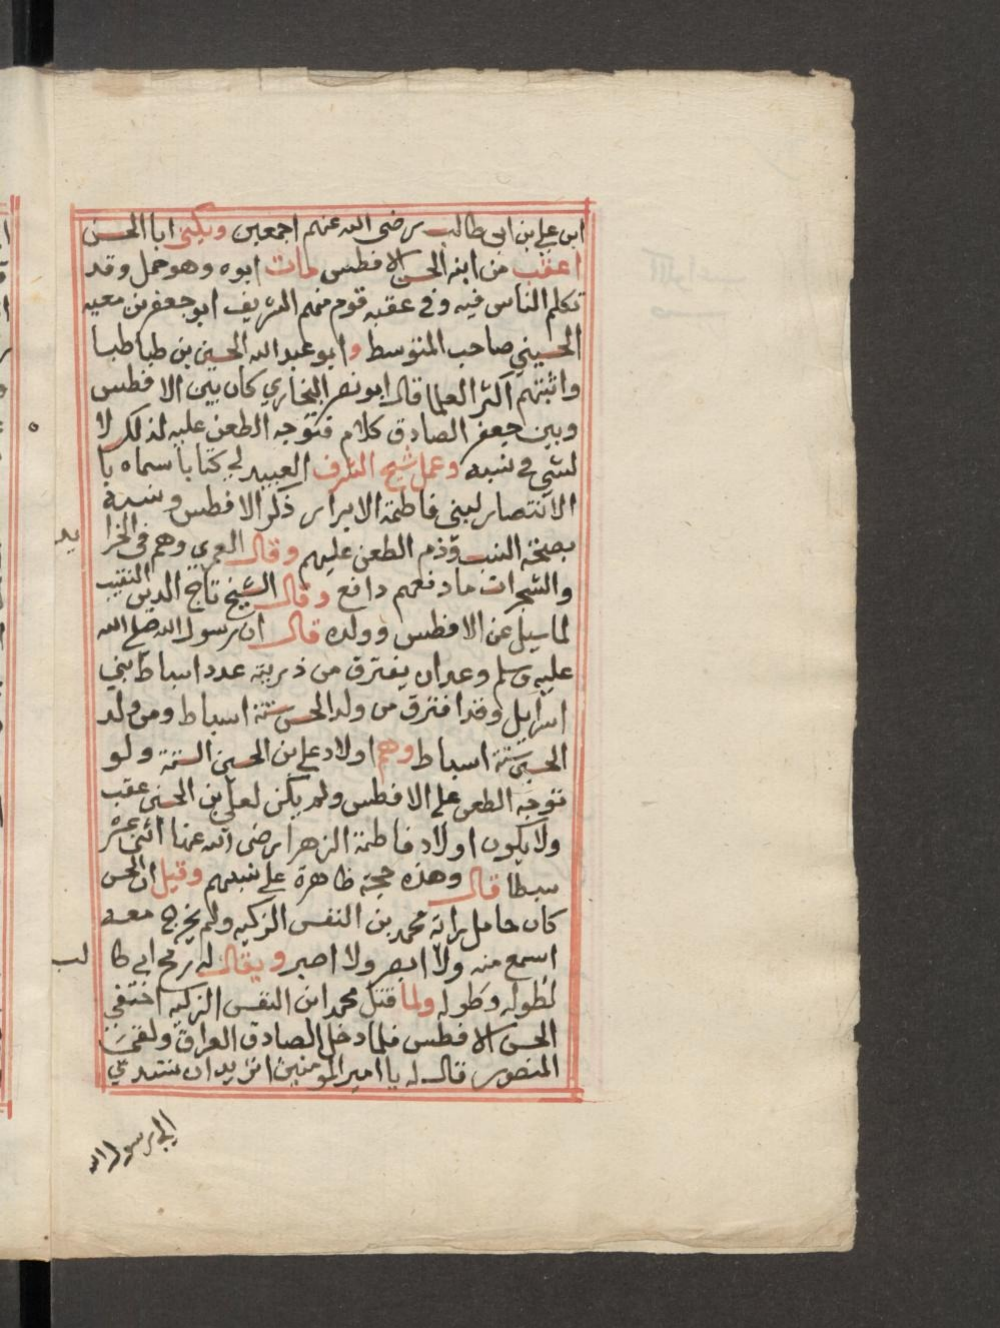 ابن علي بن ابي طالب رضى الله عنهم اجمعين ويكنى ابا الحسن
اعقب من ابنه الحسن الافطس مات ابوه وهو حمل وقد
تكلم الناس فيه وفي عقبه قوم منهم الشريف ابو جعفر بن معيه
الحسيني صاحب المتوسط وابو عبدالله الحسين بن طباطبا
واثبتهم اكثر العلما قال ابو نصر البخاري كان بين الافطس
وبين جعفر الصادق كلام فتوجه الطعن عليه لذلك لا
لشي في نسبه وعمل شيخ الشرف العبيدلي كتابا سماه با
الانتصار لبني فاطمة الابرار ذكر الافطس ونسبه
بصحة النسب وذم الطعن عليهم وقال العمري وهم في الجرا
يد
والشجرات ما دفعهم دافع وقال الشيخ تاج الدين النقيب
لما سيل عن الافطس وولده قال ان رسول الله صلى الله
عليه وسلم وعد ان يفترق من ذريته عدد اسباط بني
اسرايل وقد افترق من ولد الحسن ستة اسباط ومن ولد
الحسين ستة اسباط وهم اولاد علي بن الحسين الستة ولو
توجه الطعن على الافطس ولم يكن لعلي بن الحسين عقب
ولا يكون اولاد فاطمة الزهرا رضى الله عنها اثني عشر
سبطا قال وهذه حجة ظاهرة على نسبهم وقيل ان الحسن
كان حامل راية محمد بن النفس الزكيه ولم يخرج معه
اسمع منه ولا ابصر ولا اصبر ويقال له رمح ابي طا
لب
لطوله وطوله ولما قتل محمد ابن النفس الزكيه اختفي
الحسن الافطس فلما دخل الصادق العراق ولقى
المنصور قال له يا امير المومنين اتريد ان تسدي
الي رسول الله